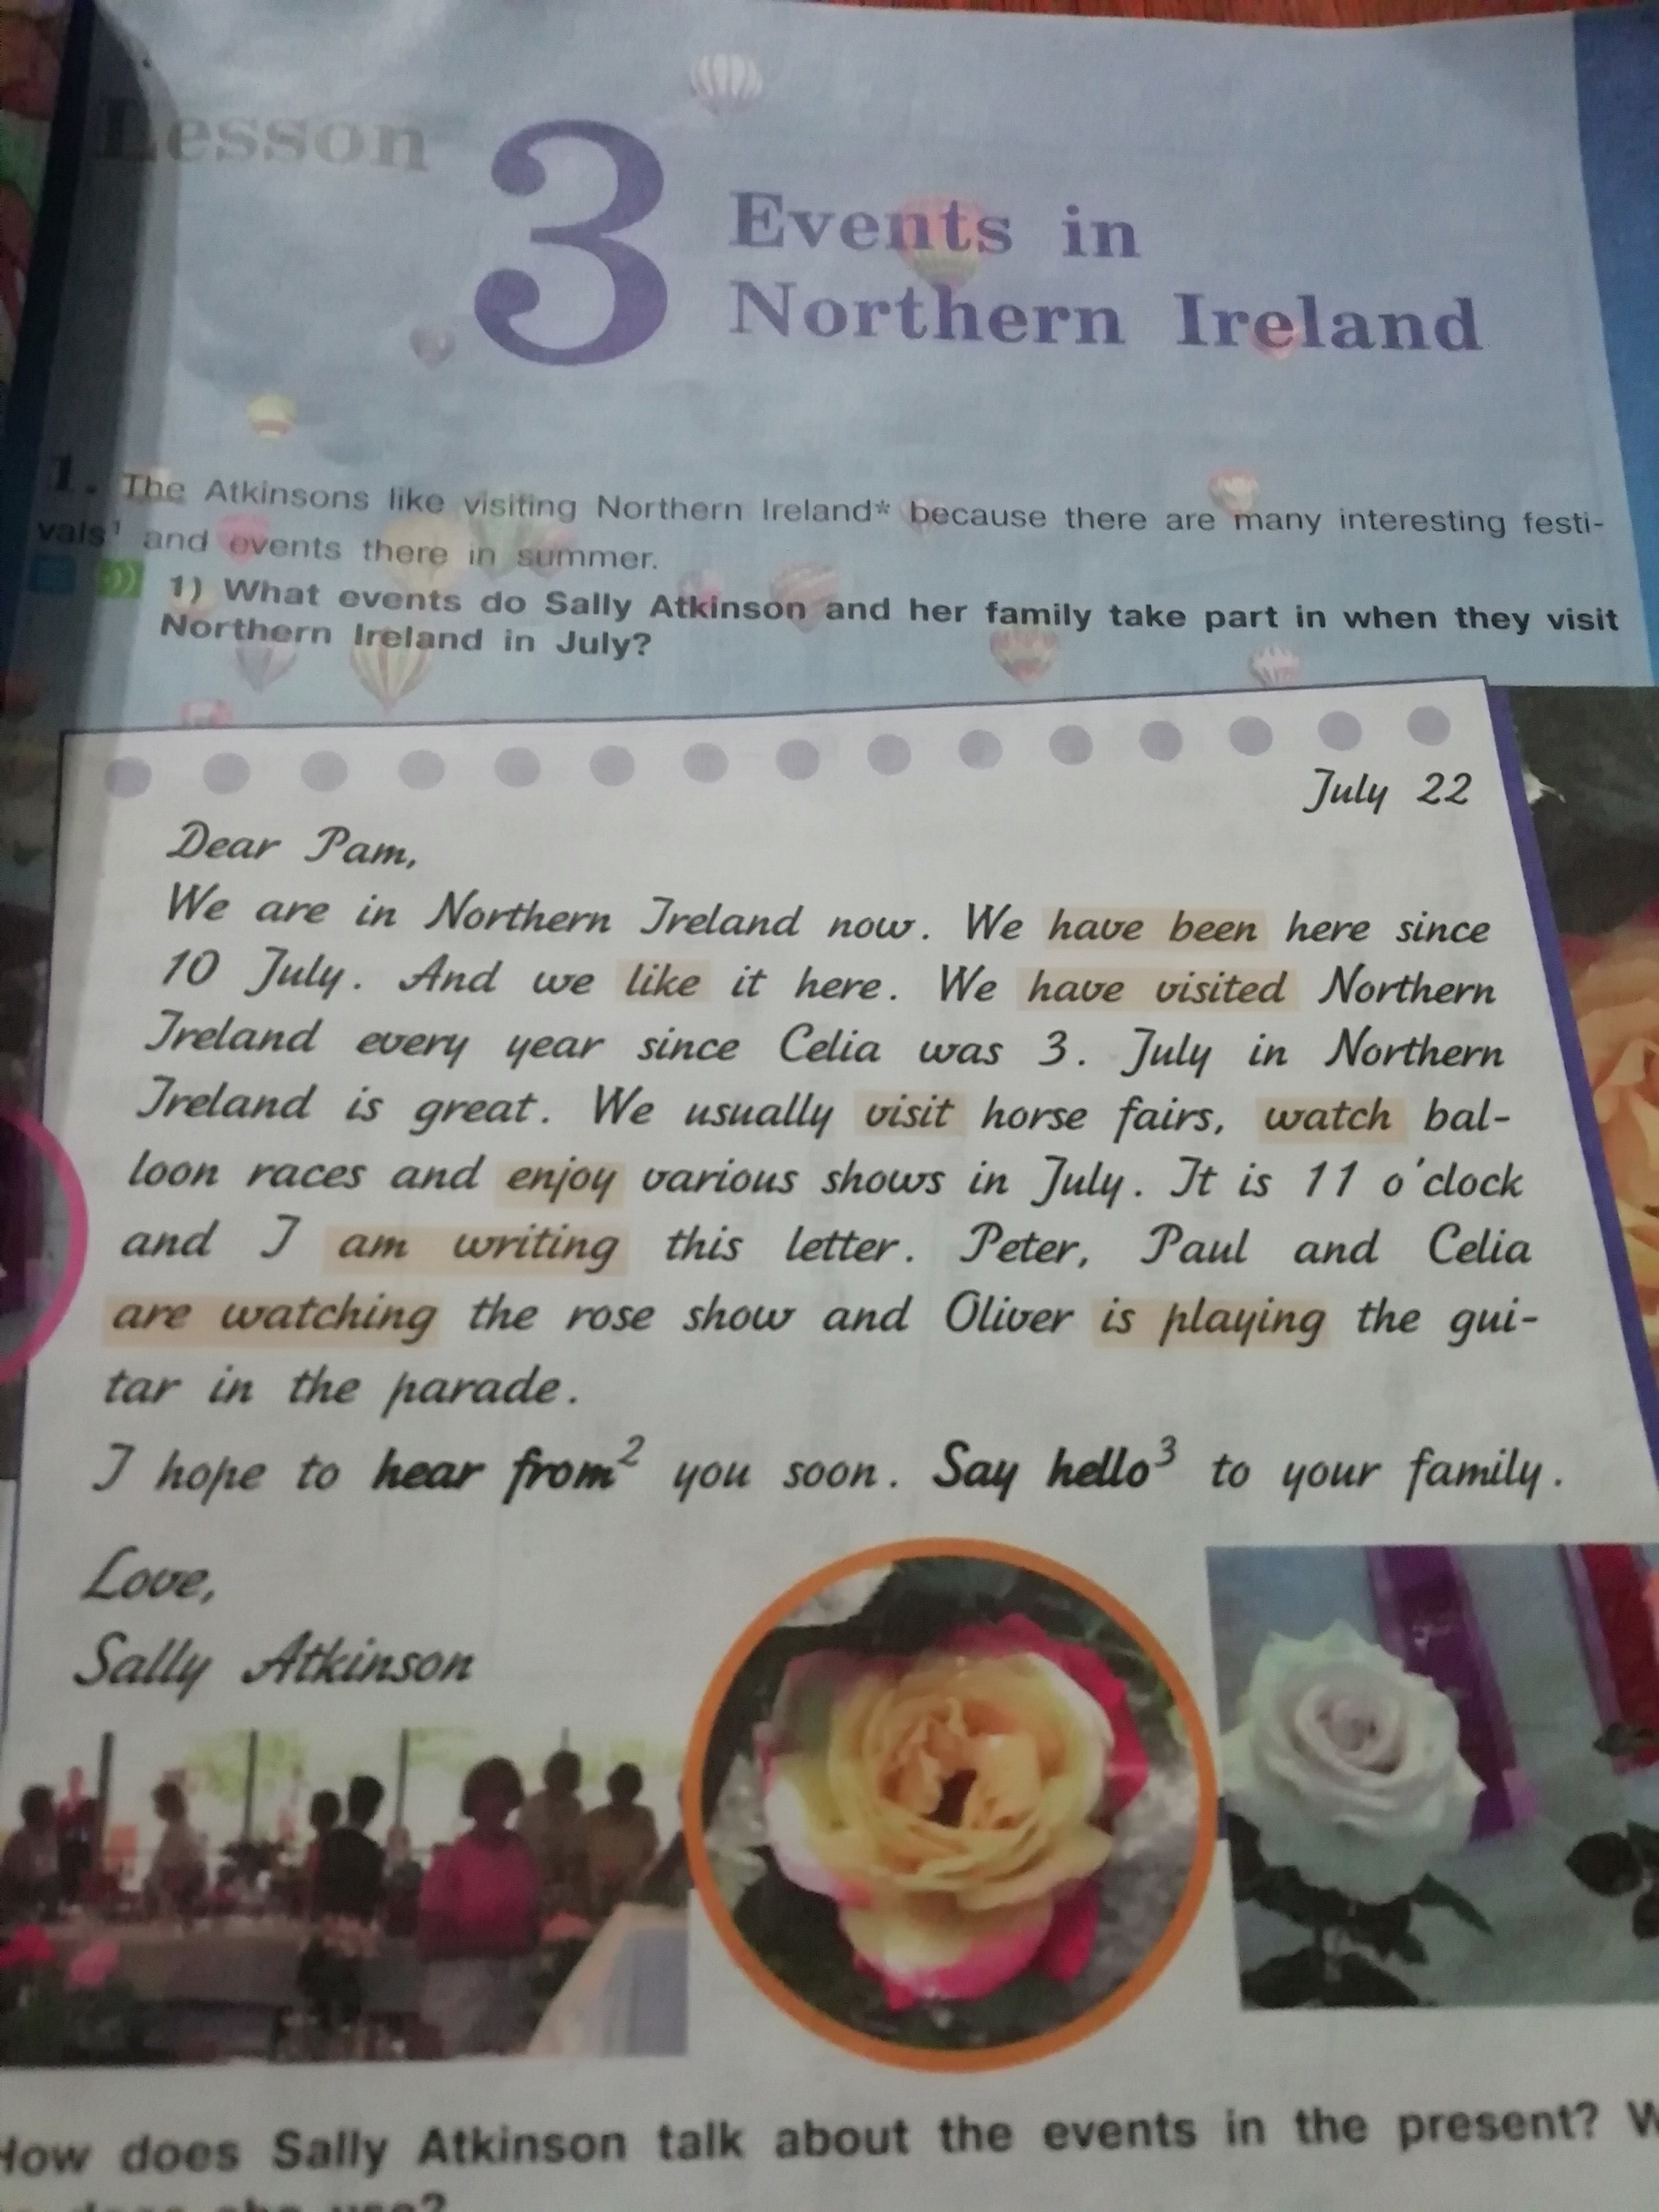 Lesson
3
Events in
Northern Ireland
1. The Atkinsons like visiting Northern Ireland* because there are many interesting festi-
vals¹ and events there in summer.
1) What events do Sally Atkinson and her family take part in when they visit
Northern Ireland in July?
July 22
Dear Pam,
We are in Northern Ireland now. We have been here since
10 July. And we like it here. We have visited Northern
Ireland every year since Celia was 3. July in Northern
Ireland is great. We usually visit horse fairs, watch bal-
loon races and enjoy various shows in July. It is 11 o'clock
and I am writing this letter. Peter, Paul and Celia
are watching the rose show and Oliver is playing the gui-
tar in the parade.
I hope to hear from² you soon. Say hello³ to your family.
Love,
Sally Atkinson
How does Sally Atkinson talk about the events in the present?
does she use?